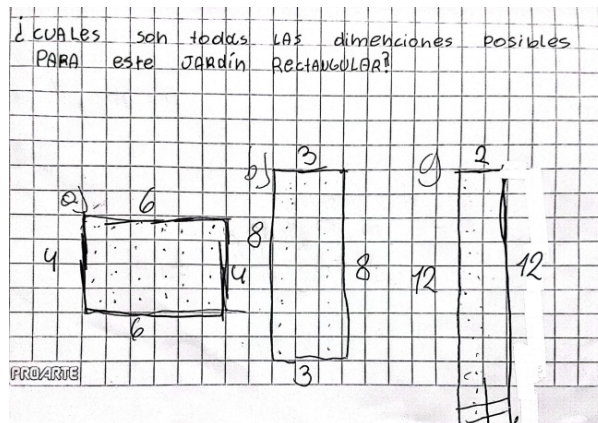 ¿CUALES son todas LAS dimenciones posibles
PARA este JARdín RECTANGULAR?
a) 6
4 4
6
b) 3
8 8
3
c) 2
12 12
PROARTE